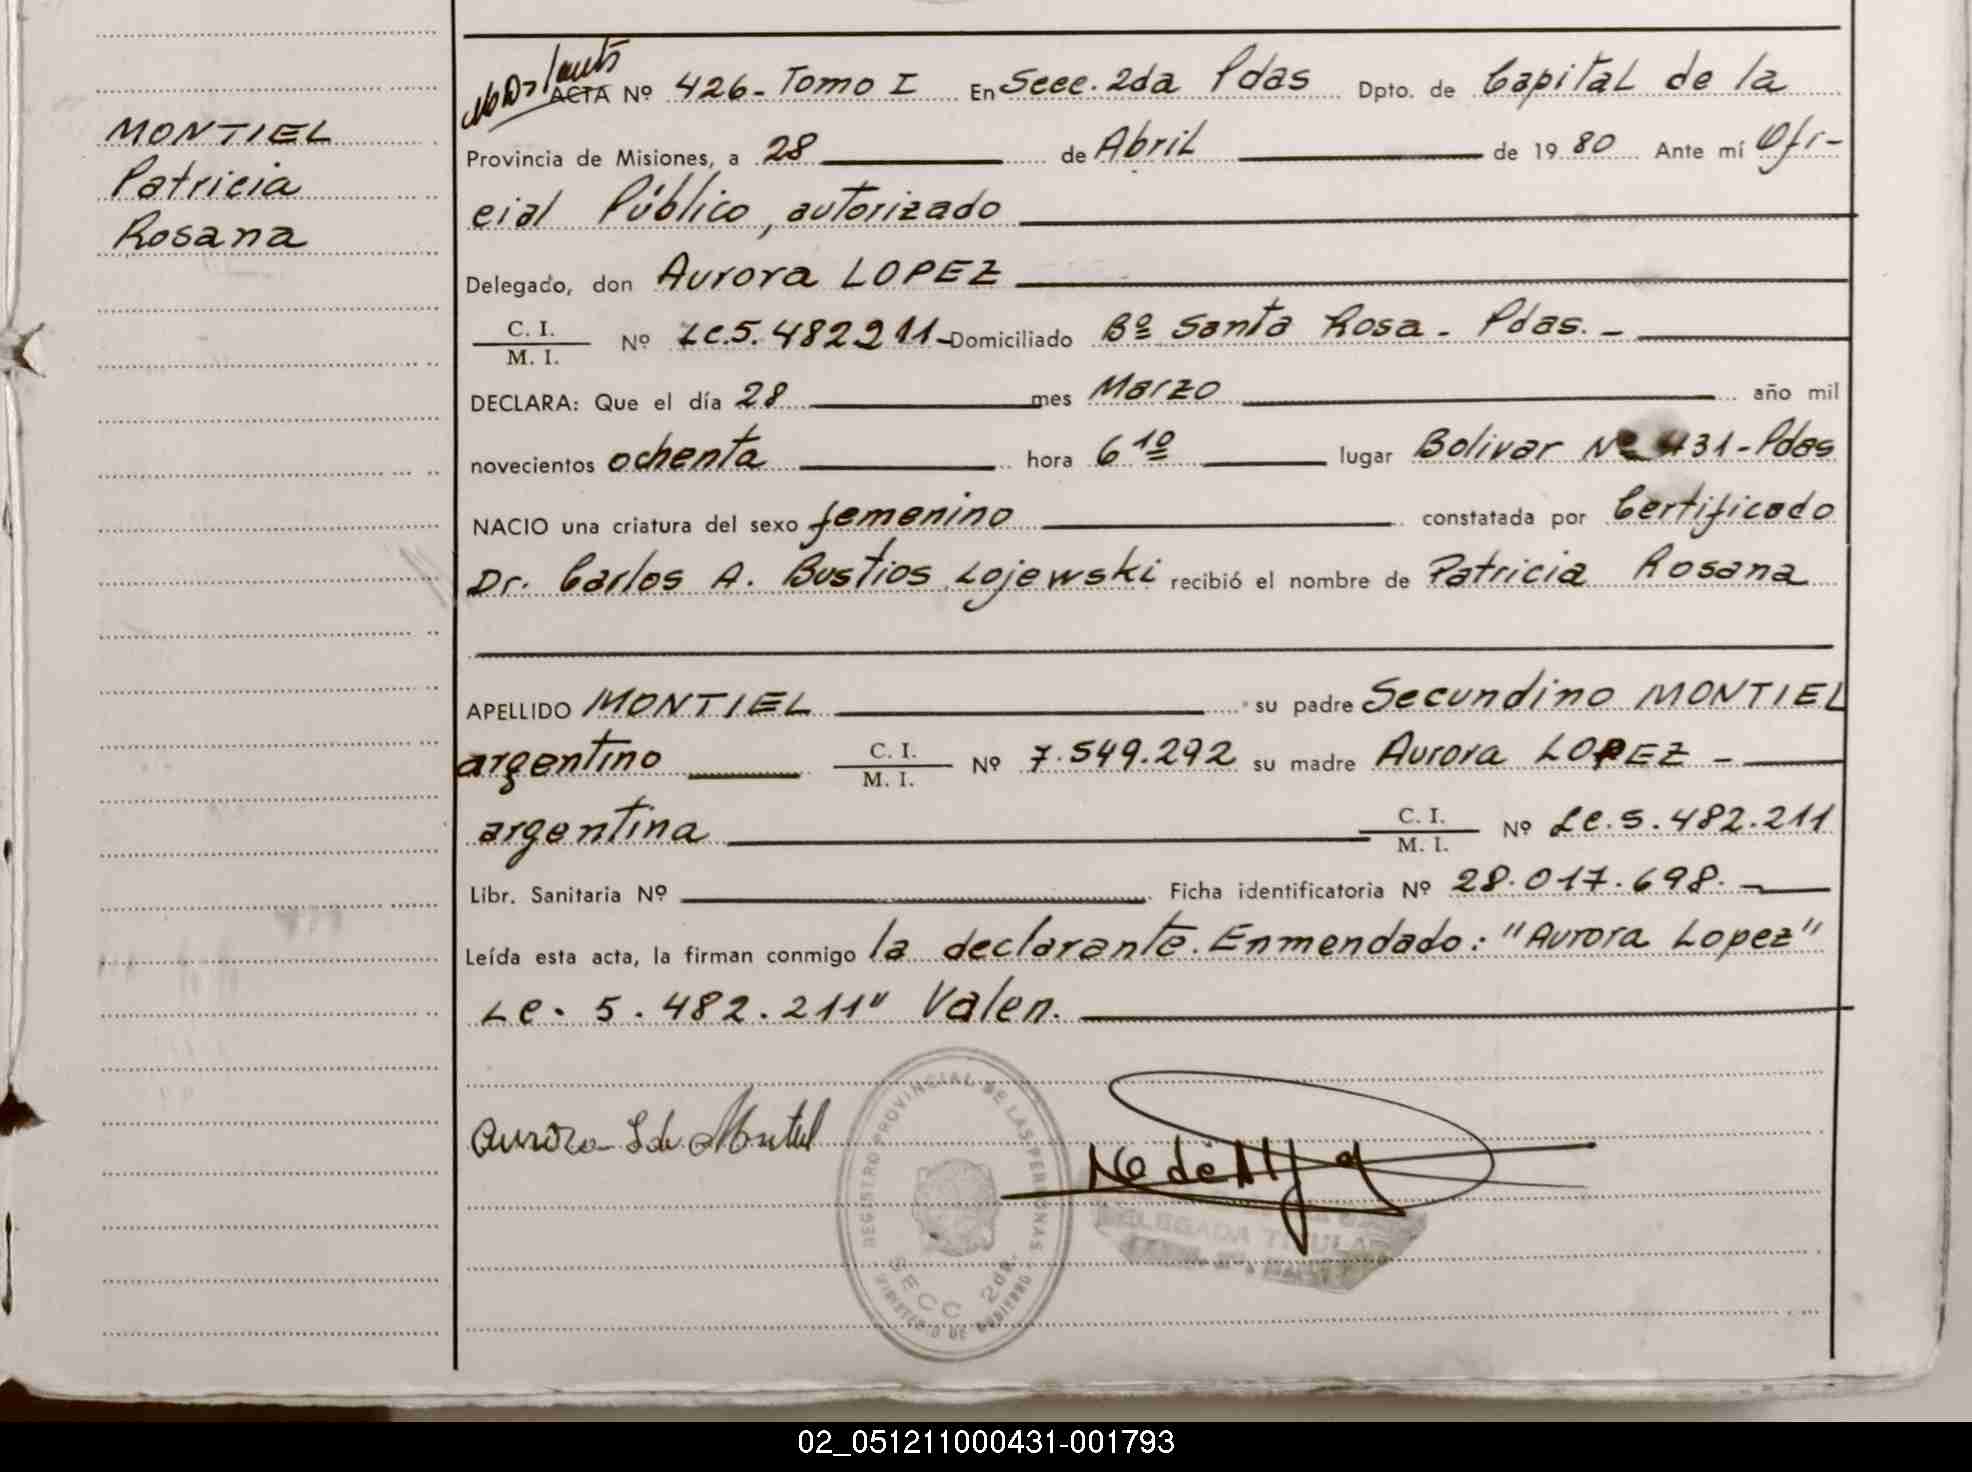 MONTIEL
Patricia
Rosana
ACTA Nº 426- Tomo I En Secc. 2da Pdas Dpto. de Capital de la
Provincia de Misiones, a 28 de Abril de 1980 Ante mí Ofi-
cial Público, autorizado
Delegado, don Aurora LOPEZ
C. I.
M. I. Nº Lc.5.482211-Domiciliado Bº Santa Rosa - Pdas. -
DECLARA: Que el día 28 mes Marzo año mil
novecientos ochenta hora 6 10 lugar Bolivar Nº 431-Pdas
NACIO una criatura del sexo femenino constatada por Certificado
Dr. Carlos A. Bustios Lojewski recibió el nombre de Patricia Rosana
APELLIDO MONTIEL su padre Secundino MONTIEL
argentino C. I.
M. I. Nº 7.549.292 su madre Aurora LOPEZ -
argentina C. I.
M. I. Nº Lc.5.482.211
Libr. Sanitaria Nº Ficha identificatoria Nº 28.017.698. -
Leída esta acta, la firman conmigo la declarante. Enmendado: "Aurora Lopez"
Lc. 5.482.211" Valen.
Aurora L de Montiel
REGISTRO PROVINCIAL DE LAS PERSONAS
SECC 2da.
MINISTERIO DE GOBIERNO
DELEGADA TITULAR
02_051211000431-001793